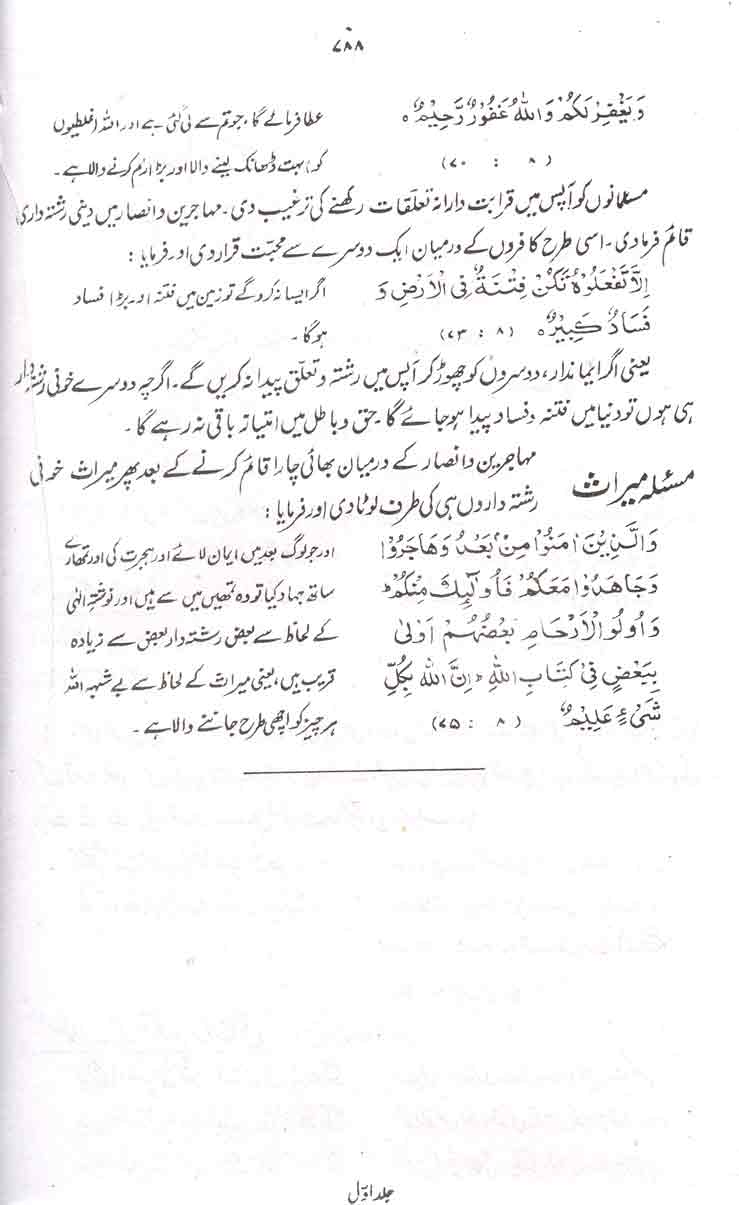 ۷۸۸
وَيَغْفِرْ لَكُمْ وَاللّٰهُ غَفُوْرٌ رَّحِيْمٌ ہ
(۸ : ۷۰)
عطا فرمائے گا، جو تم سے لی گئی ہے اور اللہ (غلطیوں
کو) بہت ڈھانک لینے والا اور بڑا رحم کرنے والا ہے۔
مسلمانوں کو آپس میں قرابت دارانہ تعلقات رکھنے کی ترغیب دی۔ مہاجرین و انصار میں دینی رشتہ داری
قائم فرمادی۔ اسی طرح کافروں کے درمیان ایک دوسرے سے محبت قرار دی اور فرمایا :
اِلَّا تَفْعَلُوْهُ تَكُنْ فِتْنَةٌ فِى الْاَرْضِ وَ
فَسَادٌ كَبِيْرٌ ہ (۸ : ۷۳)
اگر ایسا نہ کرو گے تو زمین میں فتنہ اور بڑا فساد
ہوگا۔
یعنی اگر ایماندار، دوسروں کو چھوڑ کر آپس میں رشتہ و تعلق پیدا نہ کریں گے۔ اگرچہ دوسرے خونی رشتہ دار
ہی ہوں تو دنیا میں فتنہ و فساد پیدا ہو جائے گا۔ حق و باطل میں امتیاز باقی نہ رہے گا۔
مسئلہ میراث
مہاجرین و انصار کے درمیان بھائی چارا قائم کرنے کے بعد پھر میراث خونی
رشتہ داروں ہی کی طرف لوٹا دی اور فرمایا :
وَالَّذِيْنَ اٰمَنُوْا مِنْۢ بَعْدُ وَهَاجَرُوْا
وَجَاهَدُوْا مَعَكُمْ فَاُولٰٓئِكَ مِنْكُمْ ط
وَاُولُو الْاَرْحَامِ بَعْضُهُمْ اَوْلٰى
بِبَعْضٍ فِىْ كِتَابِ اللّٰهِ ط اِنَّ اللّٰهَ بِكُلِّ
شَىْءٍ عَلِيْمٌ (۸ : ۷۵)
اور جو لوگ بعد میں ایمان لائے اور ہجرت کی اور تمھارے
ساتھ جہاد کیا تو وہ تمھیں میں سے ہیں اور نوشتہ الٰہی
کے لحاظ سے بعض رشتہ دار بعض سے زیادہ
قریب ہیں، یعنی میراث کے لحاظ سے بے شبہ اللہ
ہر چیز کو اچھی طرح جاننے والا ہے۔
جلد اوّل